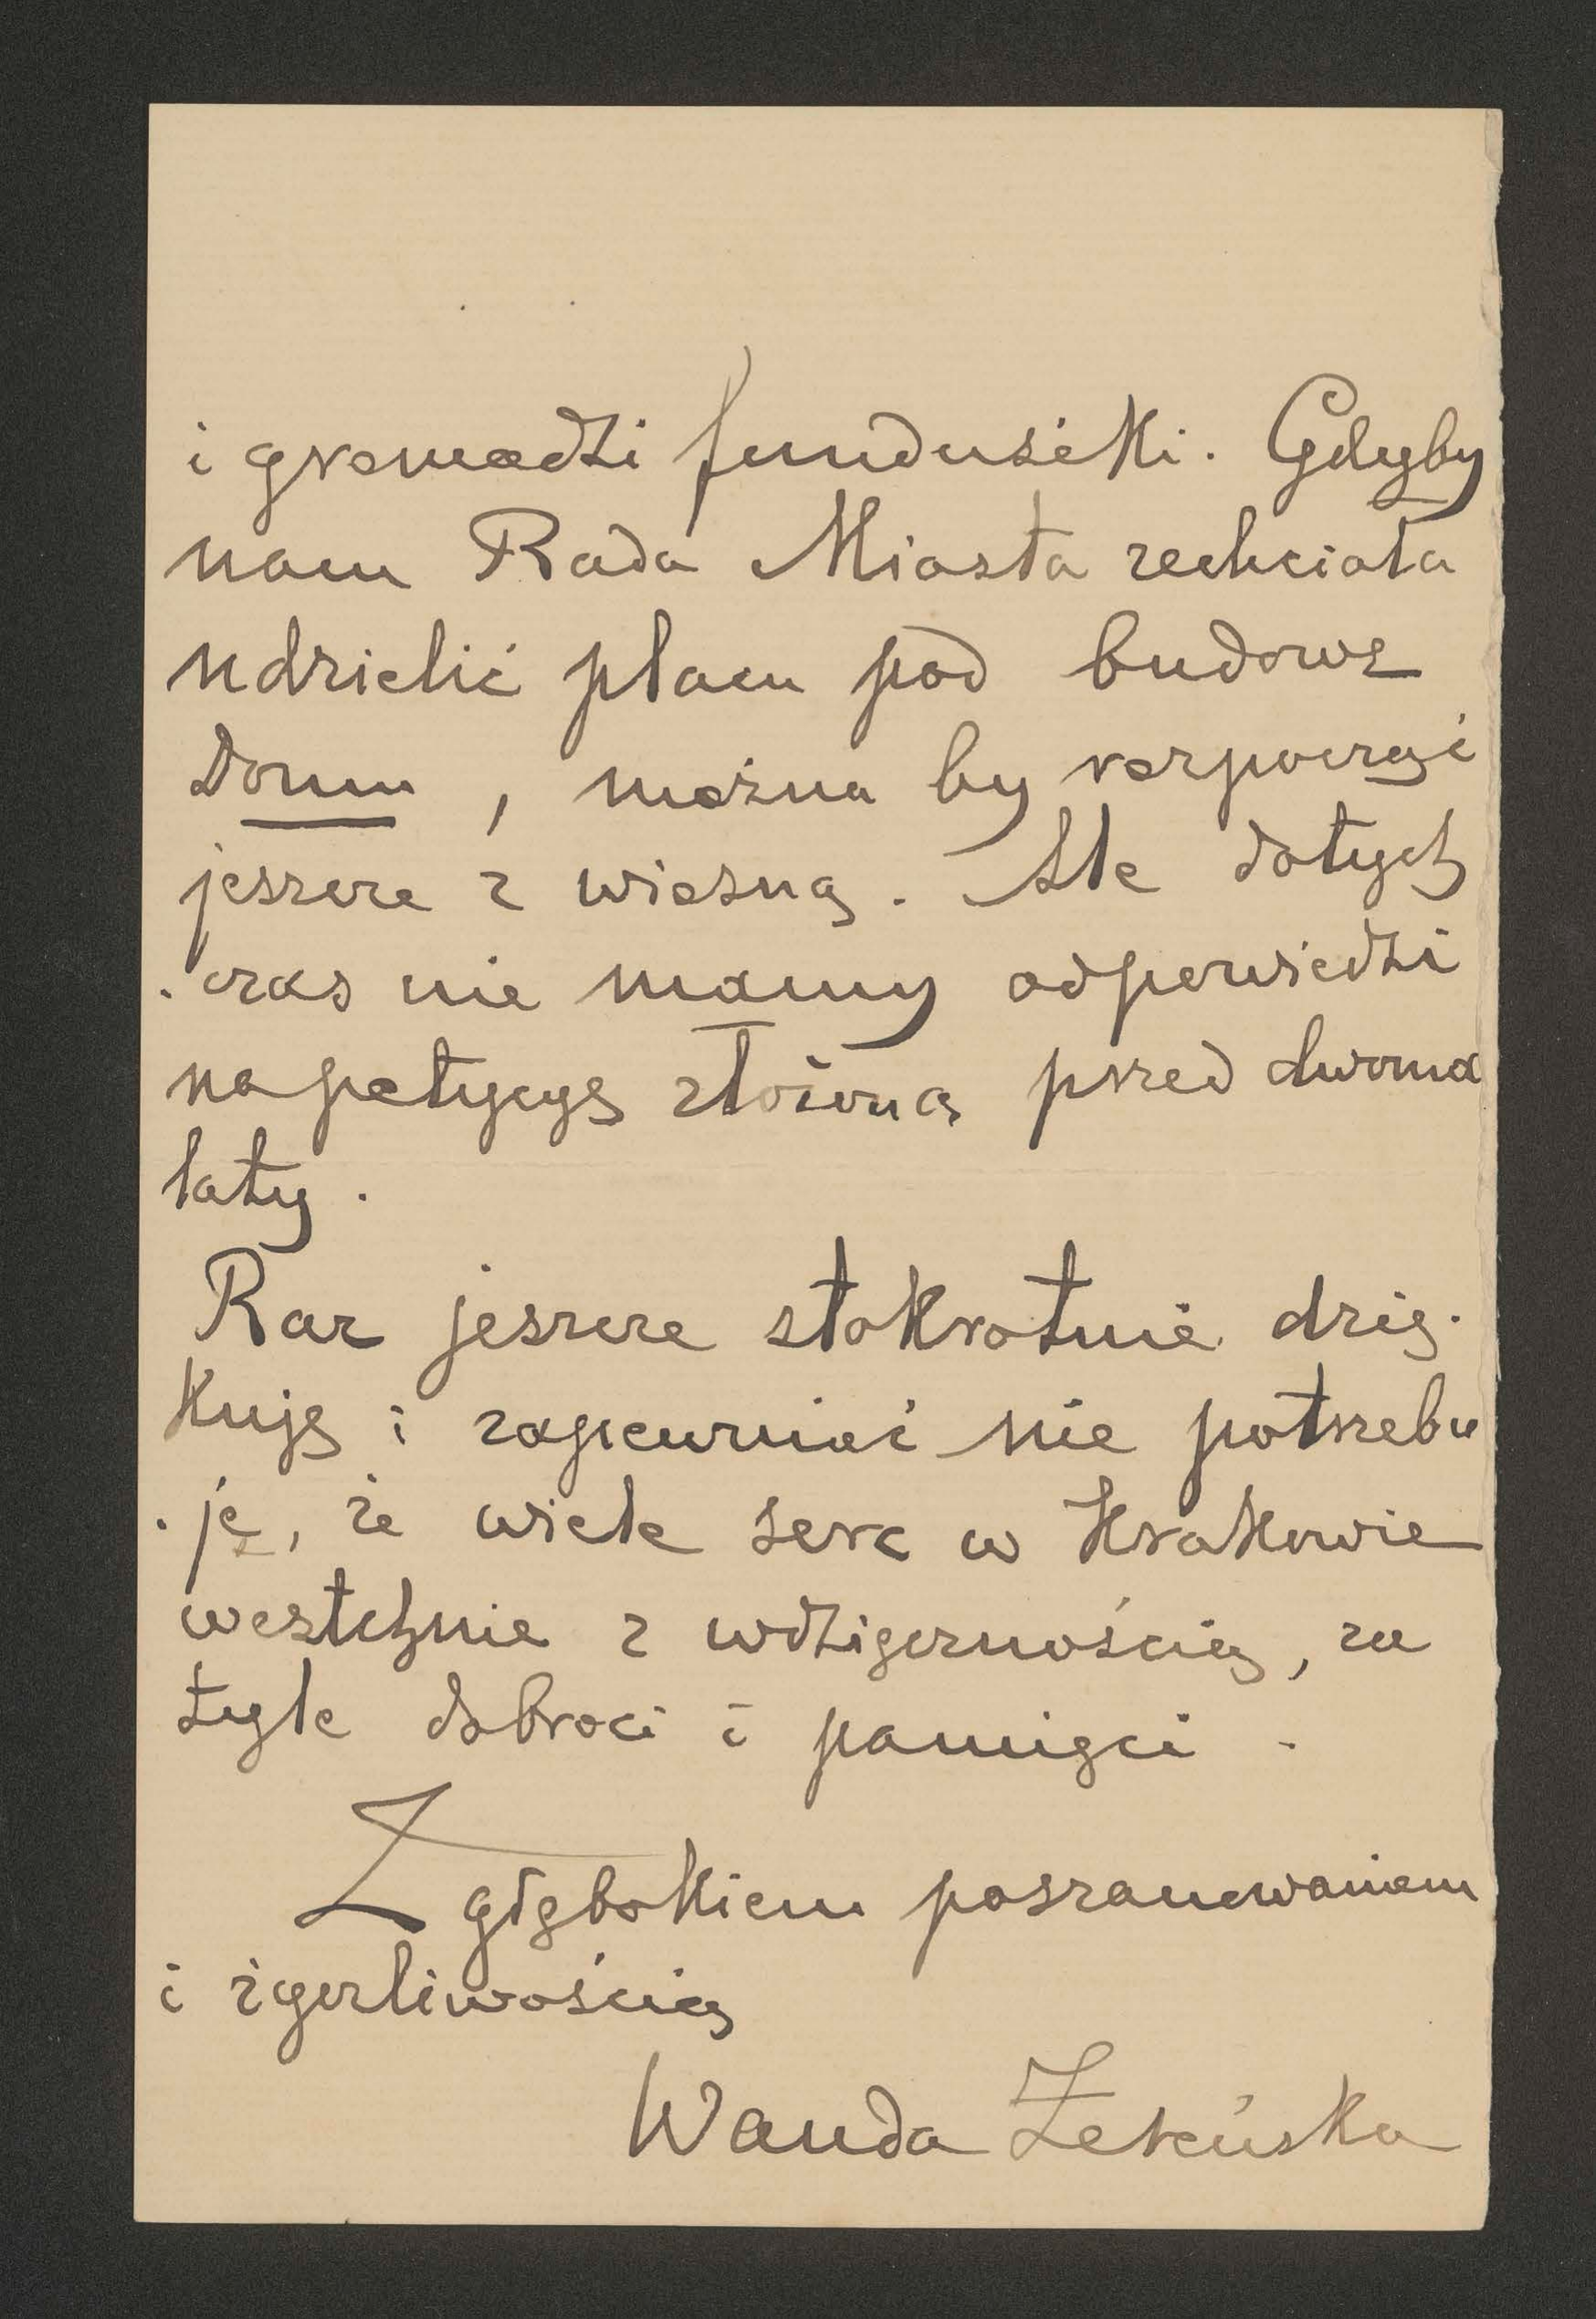 i gromadzi fundusiki. Gdyby
nam Rada Miasta zechciała
udzielić placu pod budowę
Domu, można by rozpocząć
jeszcze z wiosną. Ale dotych
-czas nie mamy odpowiedzi
na petycyę złożoną przed dwoma
laty.
Raz jeszcze stokrotnie dzię-
kuję i zapewniać nie potrzebu
-ję, że wiele serc w Krakowie
westchnie z wdzięcznością, za
tyle dobroci i pamięci.
Z głębokiem poszanowaniem
i życzliwością
Wanda Żeleńska